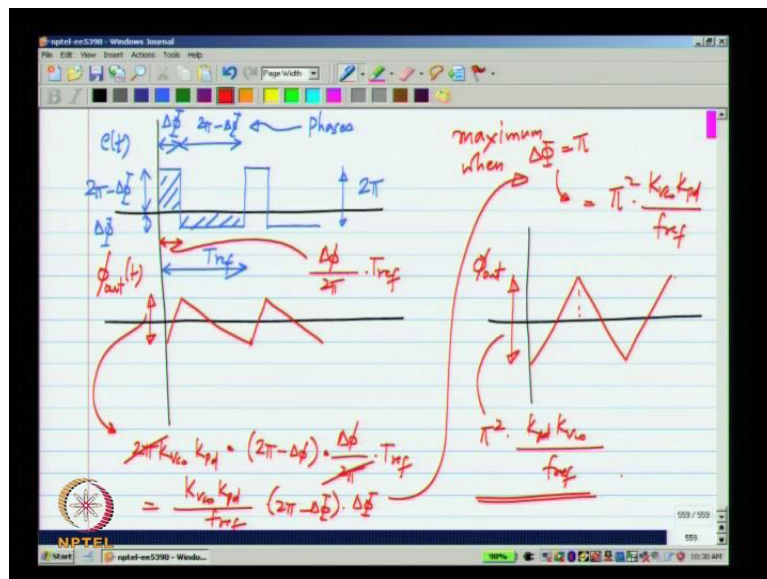 nptel-ee5390 - Windows Journal
File Edit View Insert Actions Tools Help
Page Width
B I
e(t)
ΔΦ 2π-ΔΦ ← phases
2π-ΔΦ
ΔΦ
2π
Tref
Δϕ/2π · Tref
ϕout(t)
2π Kvco Kpd · (2π-Δϕ) · Δϕ/2π · Tref
= Kvco Kpd/fref (2π-ΔΦ) · ΔΦ
maximum
when ΔΦ = π
= π² · Kvco Kpd/fref
ϕout
π² · Kpd Kvco/fref
NPTEL
559 / 559
559
Start nptel-ee5390 - Windo...
98%
10:30 AM